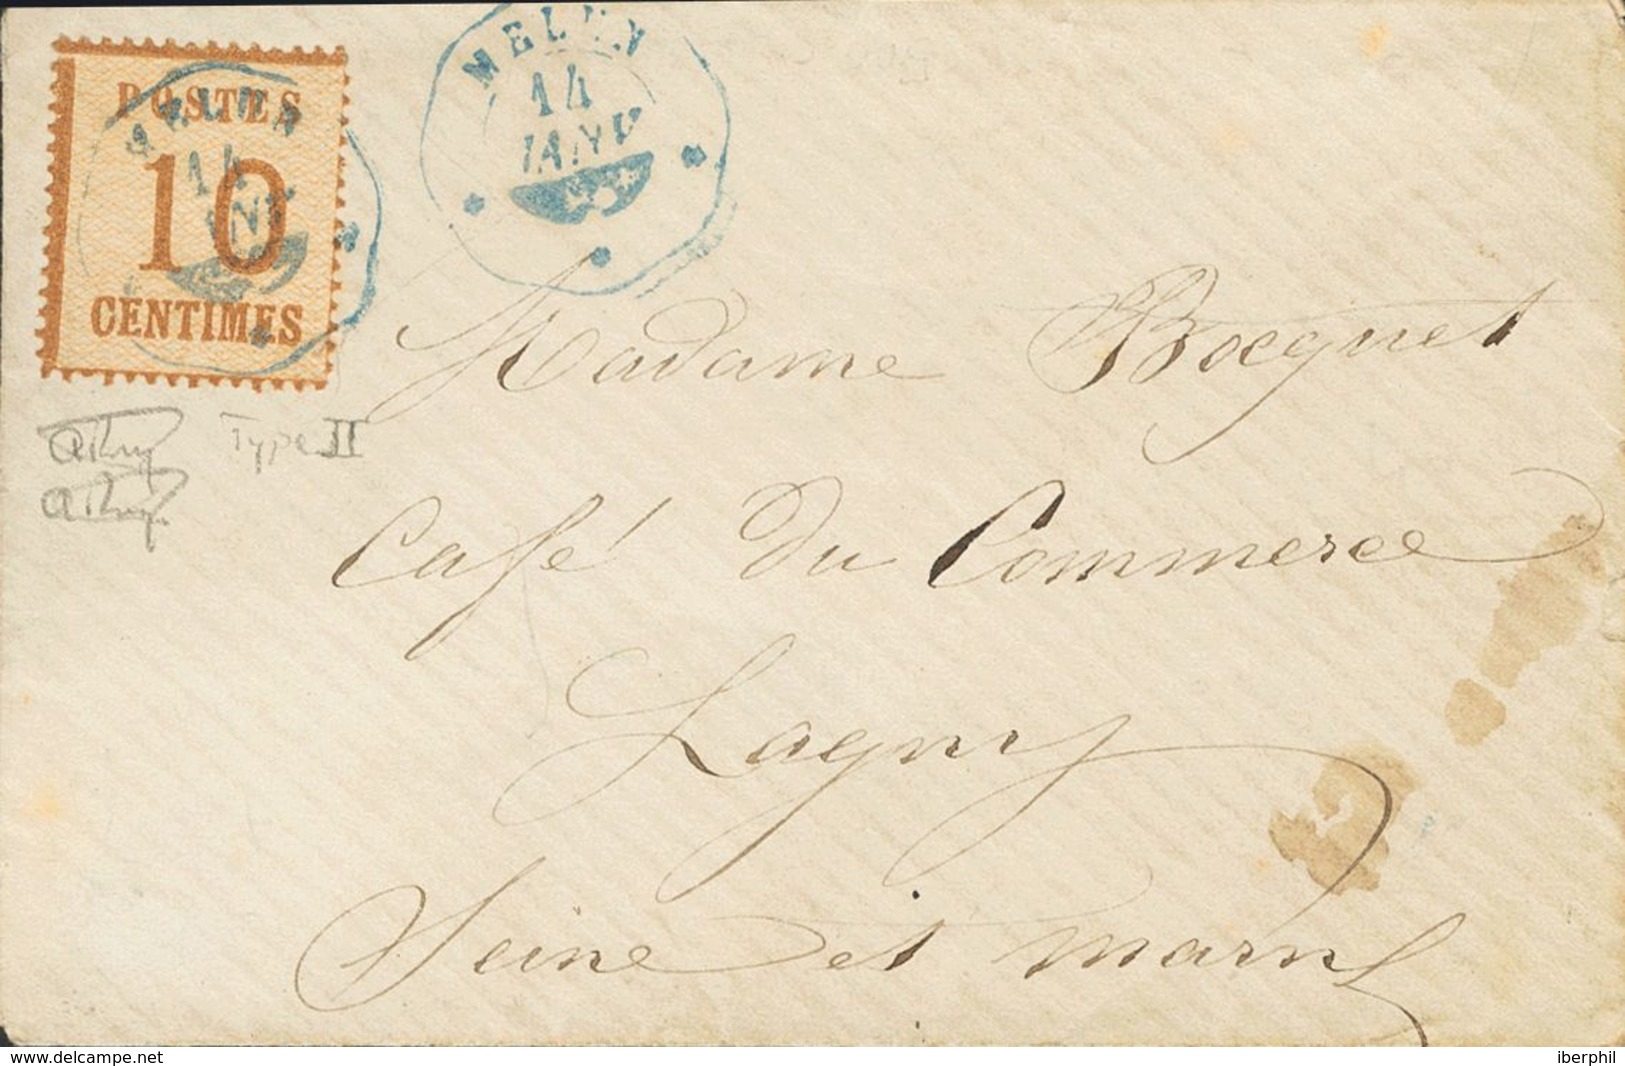 POSTES
10
CENTIMES
MELUN
14
JANV
MELUN
14
JANV
Type II
Madame Bocquet
Café du Commerce
Lagny
Seine et Marne
delcampe.net
iberphil